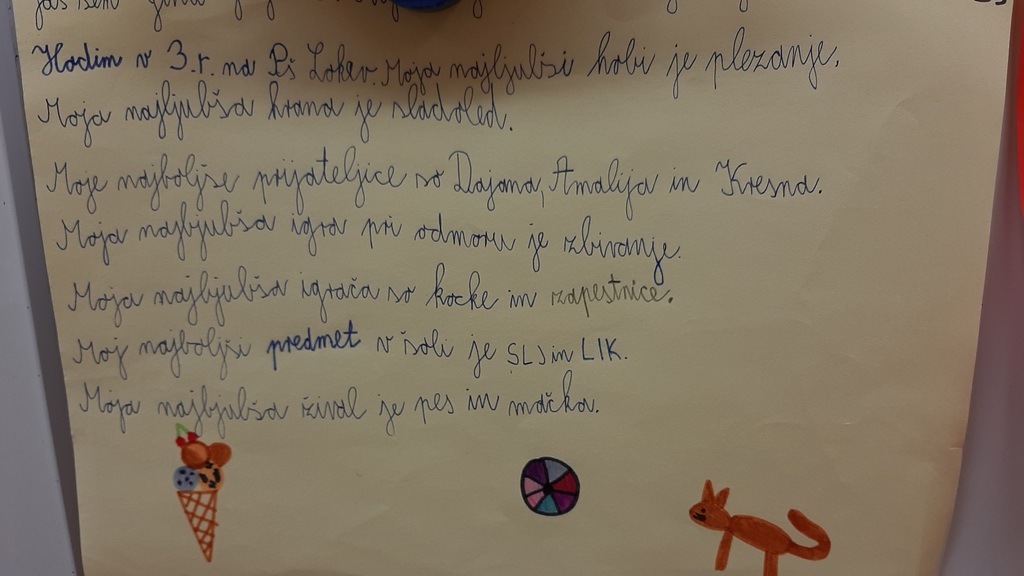 Hodim v 3.r. na PŠ Lokev. Moja najljubši hobi je plezanje.
Moja najljubša hrana je sladoled.
Moje najboljše prijateljice so Dajana, Amalija in Kresna.
Moja najbjubša igra pri odmoru je zbiranje.
Moja najbjubša igrača so kocke in zapestnice.
Moj najboljši predmet v šoli je SLJ in LIK.
Moja najbjubša žival je pes in mačka.